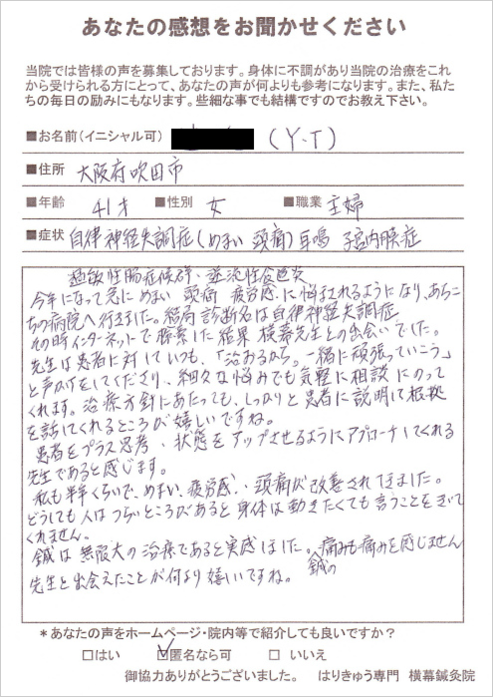 あなたの感想をお聞かせください
当院では皆様の声を募集しております。身体に不調があり当院の治療をこれ
から受けられる方にとって、あなたの声が何よりも参考になります。また、私た
ちの毎日の励みにもなります。些細な事でも結構ですのでお教え下さい。
■お名前(イニシャル可) (Y.T)
■住所 大阪府吹田市
■年齢 41才 ■性別 女 ■職業 主婦
■症状 自律神経失調症(めまい 頭痛)耳鳴 子宮内膜症
過敏性腸症候群・逆流性食道炎
今年になって急に めまい 頭痛 疲労感に悩まされるようになり、あちこ
ちの病院へ行きました。結局診断名は自律神経失調症
その時インターネットで検索した結果 横幕先生との出会いでした。
先生は患者に対していつも、「治おるから。一緒に頑張っていこう」
と声かけをしてくださり、細々な悩みでも気軽に相談にのって
くれます。治療方針にあたっても、しっかりと患者に説明して根拠
を話してくれるところが嬉しいですね。
患者をプラス思考・状態をアップさせるようにアプローチしてくれる
先生であると感じます。
私も半年くらいで、めまい、疲労感、頭痛が改善されてきました。
どうしても人はつらいところがあると身体は動きたくても言うことをきいて
くれません。
鍼は無限大の治療であると実感しました。鍼の痛みも痛みを感じません
先生と出会えたことが何より嬉しいですね。
*あなたの声をホームページ・院内等で紹介しても良いですか?
□はい ☑匿名なら可 □いいえ
御協力ありがとうございました。 はりきゅう専門 横幕鍼灸院